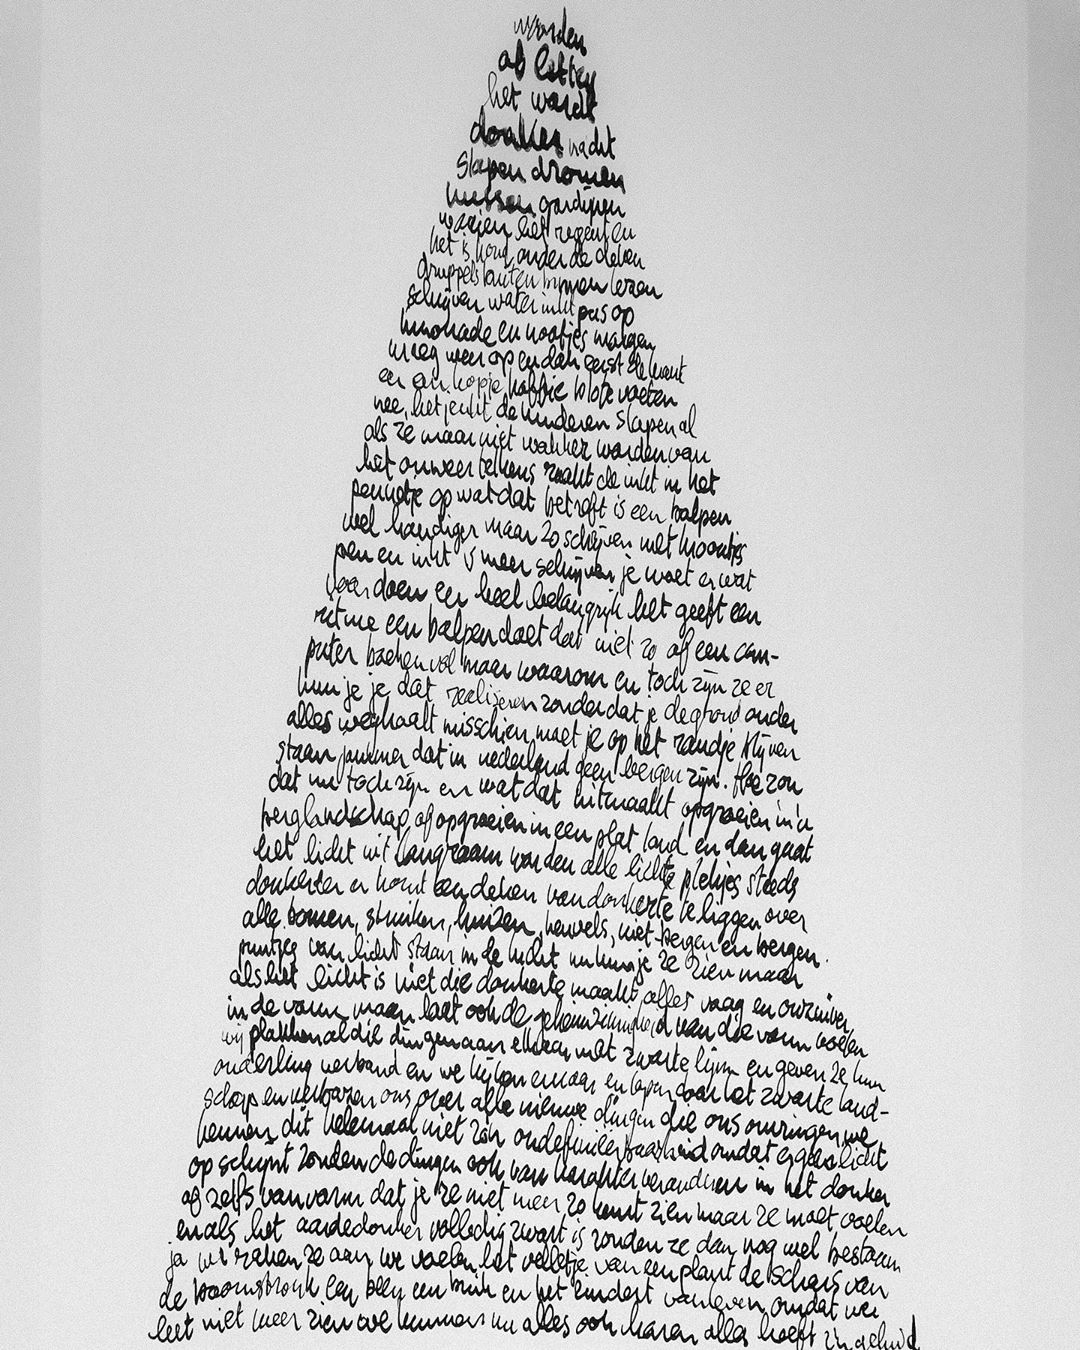 worden
het wordt
donker nacht
slapen dromen
kussen gordijnen
waaien het regent en
het is koud onder de deken
druppels buiten binnen lezen
schrijven water inkt pas op
limonade en nootjes morgen
vroeg weer op en dan eerst de krant
en een kopje koffie blote voeten
nee, het jeukt de kinderen slapen al
als ze maar niet wakker worden van
het onweer telkens raakt de inkt in het
pennetje op wat dat betreft is een balpen
wel handiger maar zo schrijven met kroontjes
pen en inkt is meer schrijven je moet er wat
voor doen en heel belangrijk het geeft een
ritme een balpen doet dat niet zo of een com-
puter boeken vol maar waarom en toch zijn ze er
kun je je dat realiseren zonder dat je de grond onder
alles weghaalt misschien moet je op het randje blijven
staan jammer dat in nederland geen bergen zijn. Hoe zou
dat nu toch zijn en wat dat uitmaakt opgroeien in 'n
berglandschap of opgroeien in een plat land en dan gaat
het licht uit langzaam worden alle lichte plekjes steeds
donkerder er komt een deken van donkerte te liggen over
alle bomen, struiken, huizen, heuvels, niet-bergen en bergen.
puntjes van licht staan in de lucht nu kun je ze zien maar
als het licht is niet die donkerte maakt alles vaag en onzuiver
in de vorm maar laat ook de geheimzinnigheid van die vorm voelen
wij plakken al die dingen aan elkaar met zwarte lijnen en geven ze hun
onderling verband en we kijken ernaar en lopen door het zwarte land-
schap en verbazen ons over alle nieuwe dingen die ons omringen we
kennen dit helemaal niet zo'n ondefinieerbaarheid omdat er geen licht
op schijnt zouden de dingen ook van karakter veranderen in het donker
of zelfs van vorm dat je ze niet meer zo kunt zien maar ze moet voelen
en als het aardedonker volledig zwart is zouden ze dan nog wel bestaan
ja we raken ze aan, we voelen het velletje van een plant de schors van
de boomstronk een been een buik en het kindert van leven omdat we
het niet meer zien we kunnen nu alles ook horen alles heeft z'n geluid